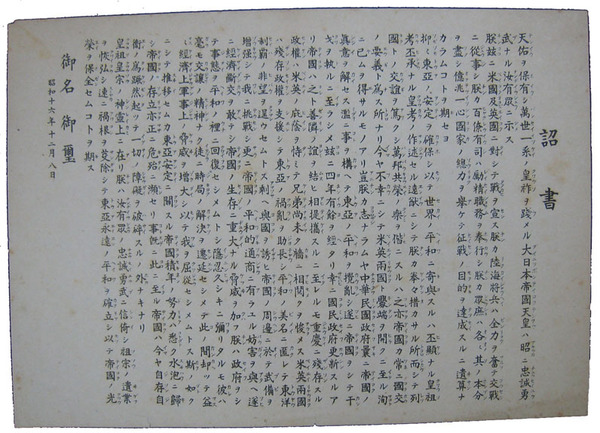 詔書
天佑ヲ保有シ萬世一系ノ皇祚ヲ踐メル大日本帝國天皇ハ昭ニ忠誠勇
武ナル汝有眾ニ示ス
朕茲ニ米國及英國ニ對シテ戰ヲ宣ス朕カ陸海將兵ハ全力ヲ奮テ交戰
ニ從事シ朕カ百僚有司ハ勵精職務ヲ奉行シ朕カ眾庶ハ各〻其ノ本分
ヲ盡シ億兆一心國家ノ總力ヲ擧ケテ征戰ノ目的ヲ達成スルニ遺算ナ
カラムコトヲ期セヨ
抑〻東亞ノ安定ヲ確保シ以テ世界ノ平和ニ寄與スルハ丕顯ナル皇祖
考丕承ナル皇考ノ作述セル遠猷ニシテ朕カ拳々措カサル所而シテ列
國トノ交誼ヲ篤クシ萬邦共榮ノ樂ヲ偕ニスルハ之亦帝國カ常ニ國交
ノ要義ト爲ス所ナリ今ヤ不幸ニシテ米英兩國ト釁端ヲ開クニ至ル洵
ニ已ムヲ得サルモノアリ豈朕カ志ナラムヤ中華民國政府曩ニ帝國ノ
眞意ヲ解セス濫ニ事ヲ構ヘテ東亞ノ平和ヲ攪亂シ遂ニ帝國ヲシテ干
戈ヲ執ルニ至ラシメ茲ニ四年有餘ヲ經タリ幸ニ國民政府更新スルア
リ帝國ハ之ト善隣ノ誼ヲ結ヒ相提攜スルニ至レルモ重慶ニ殘存スル
政權ハ米英ノ庇蔭ヲ恃ミテ兄弟尚未タ牆ニ相鬩クヲ悛メス米英兩國
ハ殘存政權ヲ支援シテ東亞ノ禍亂ヲ助長シ平和ノ美名ニ匿レテ東洋
制覇ノ非望ヲ逞ウセムトス剩ヘ與國ヲ誘ヒ帝國ノ周邊ニ於テ武備ヲ
增強シテ我ニ挑戰シ更ニ帝國ノ平和的通商ニ有ラユル妨害ヲ與ヘ遂
ニ經濟斷交ヲ敢テシ帝國ノ生存ニ重大ナル脅威ヲ加フ朕ハ政府ヲシ
テ事態ヲ平和ノ裡ニ回復セシメムトシ隱忍久シキニ彌リタルモ彼ハ
毫モ交讓ノ精神ナク徒ニ時局ノ解決ヲ遷延セシメテ此ノ間却ツテ益
〻經濟上軍事上ノ脅威ヲ增大シ以テ我ヲ屈從セシメムトス斯ノ如ク
ニシテ推移セムカ東亞安定ニ關スル帝國積年ノ努力ハ悉ク水泡ニ歸
シ帝國ノ存立亦正ニ危殆ニ瀕セリ事既ニ此ニ至ル帝國ハ今ヤ自存自
衞ノ爲蹶然起ツテ一切ノ障礙ヲ破碎スルノ外ナキナリ
皇祖皇宗ノ神靈上ニ在リ朕ハ汝有眾ノ忠誠勇武ニ信倚シ祖宗ノ遺業
ヲ恢弘シ速ニ禍根ヲ芟除シテ東亞永遠ノ平和ヲ確立シ以テ帝國ノ光
榮ヲ保全セムコトヲ期ス
御名御璽
昭和十六年十二月八日